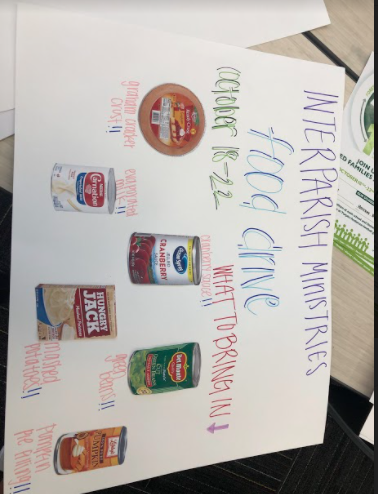 INTERPARISH MINISTRIES
food drive
October 18-22
WHAT TO BRING IN ↓
graham cracker
crust!!
evaporated
milk!!
Carnation
cranberry sauce!!
Ocean Spray
CRANBERRY
HUNGRY
JACK
mashed
potatoes!!
green
beans!!
Del Monte
PUMPKIN
pumpkin
pie filling!!
JOIN U
ED FAMILIES